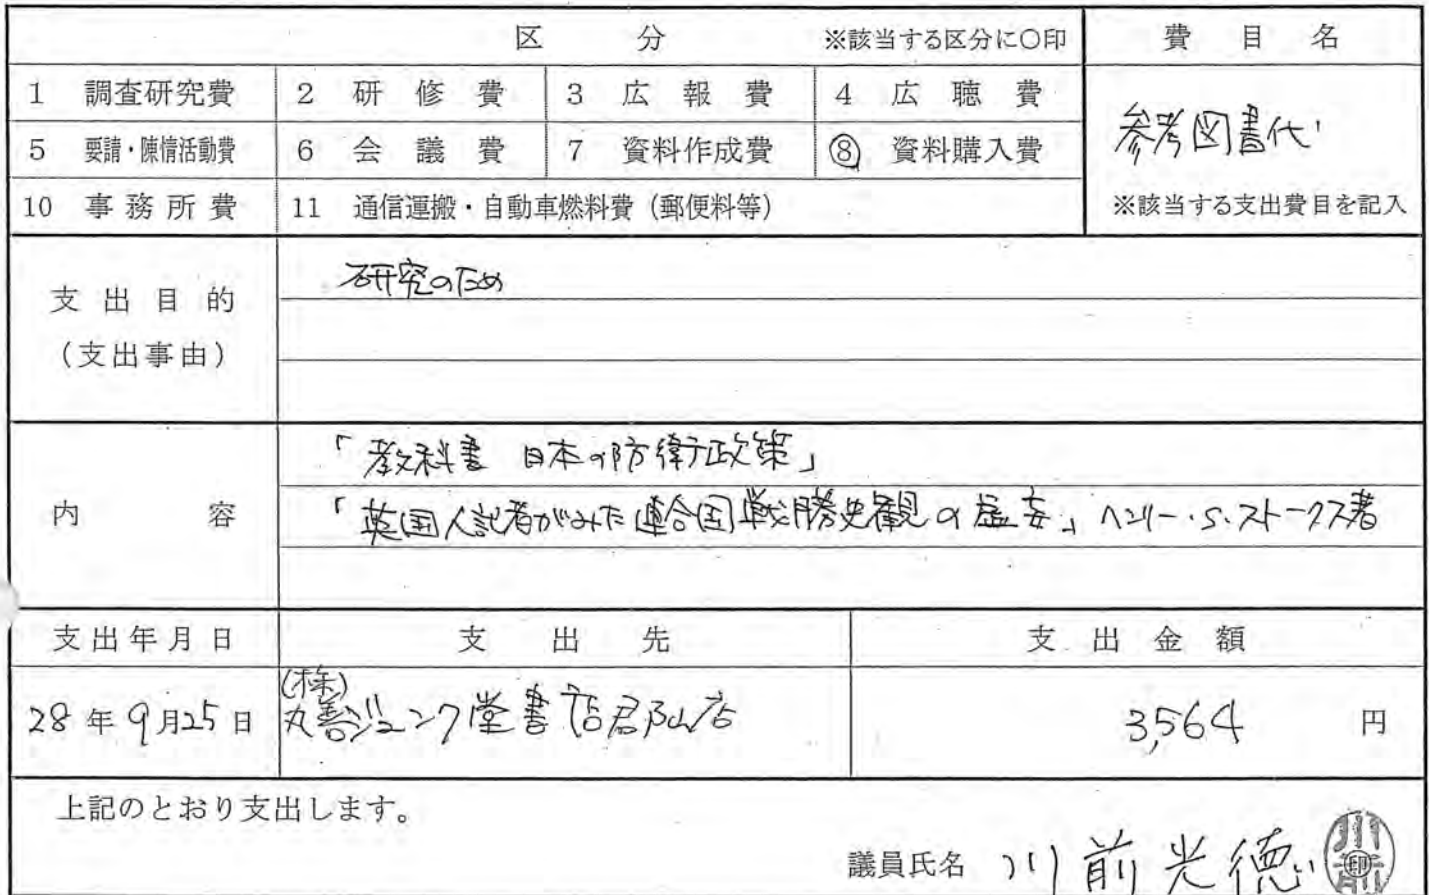 区 分 ※該当する区分に○印 費 目 名
1 調査研究費 2 研 修 費 3 広 報 費 4 広 聴 費
参考図書代
5 要請・陳情活動費 6 会 議 費 7 資料作成費 ⑧ 資料購入費
10 事務所費 11 通信運搬・自動車燃料費（郵便料等） ※該当する支出費目を記入
支出目的
（支出事由）
研究のため
内 容
「教科書 日本の防衛政策」
「英国人記者がみた連合国戦勝史観の虚妄」ヘンリー・S・ストークス著
支出年月日 支 出 先 支 出 金 額
(株)
28年9月25日 丸善ジュンク堂書店郡山店 3,564 円
上記のとおり支出します。
議員氏名 川前光徳 印
川前